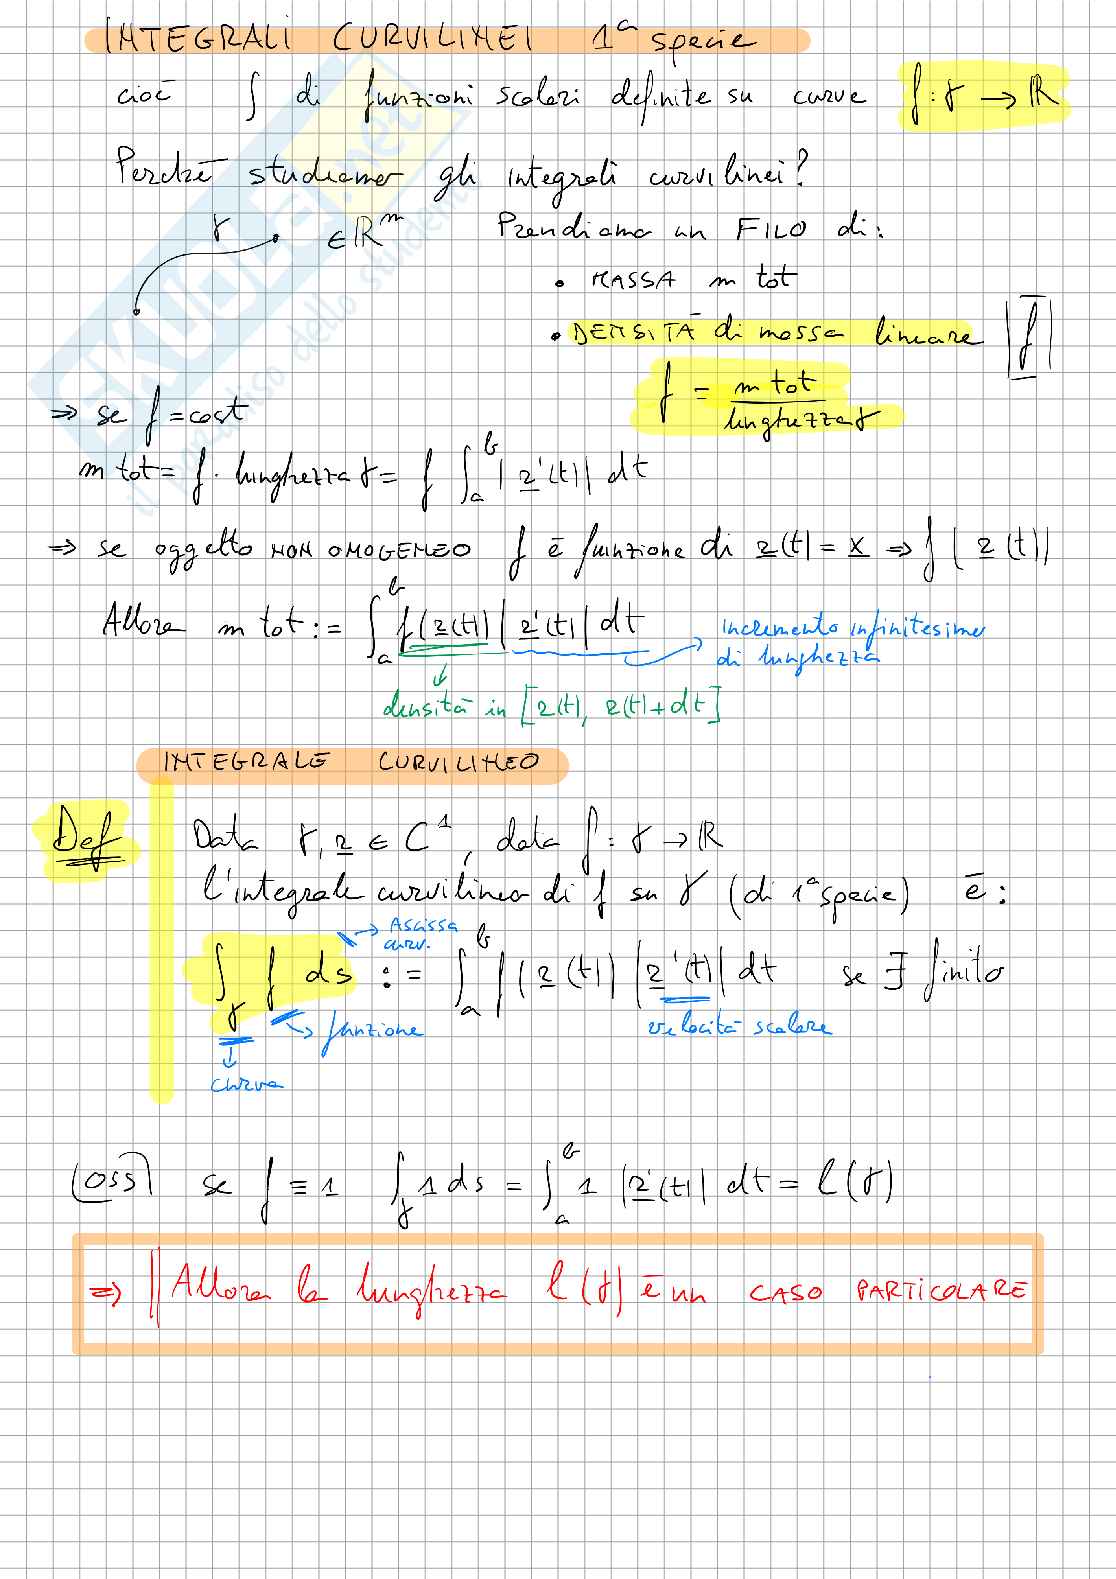 INTEGRALI CURVILINEI 1ª specie
cioè ∫ di funzioni scalari definite su curve f: γ → ℝ
Perchè studiamo gli integrali curvilinei?
γ ∈ ℝᵐ Prendiamo un FILO di:
• MASSA m tot
• DENSITÀ di massa lineare f
f = m tot / lunghezza γ
⇒ se f = cost
m tot = f · lunghezza γ = f ∫_a^b |r'(t)| dt
⇒ se oggetto NON OMOGENEO f è funzione di r(t) = x ⇒ f(r(t))
Allora m tot := ∫_a^b f(r(t)) |r'(t)| dt
incremento infinitesimo
di lunghezza
densità in [r(t), r(t)+dt]
INTEGRALE CURVILINEO
Def Data γ, r ∈ C¹, data f: γ → ℝ
l'integrale curvilineo di f su γ (di 1ª specie) è:
Ascissa
curv.
∫_γ f ds := ∫_a^b f(r(t)) |r'(t)| dt se ∃ finito
funzione velocità scalare
curva
(oss) se f ≡ 1 ∫_γ 1 ds = ∫_a^b 1 |r'(t)| dt = l(γ)
⇒ || Allora la lunghezza l(γ) è un CASO PARTICOLARE
SKUOLA.net
il paradiso dello studente